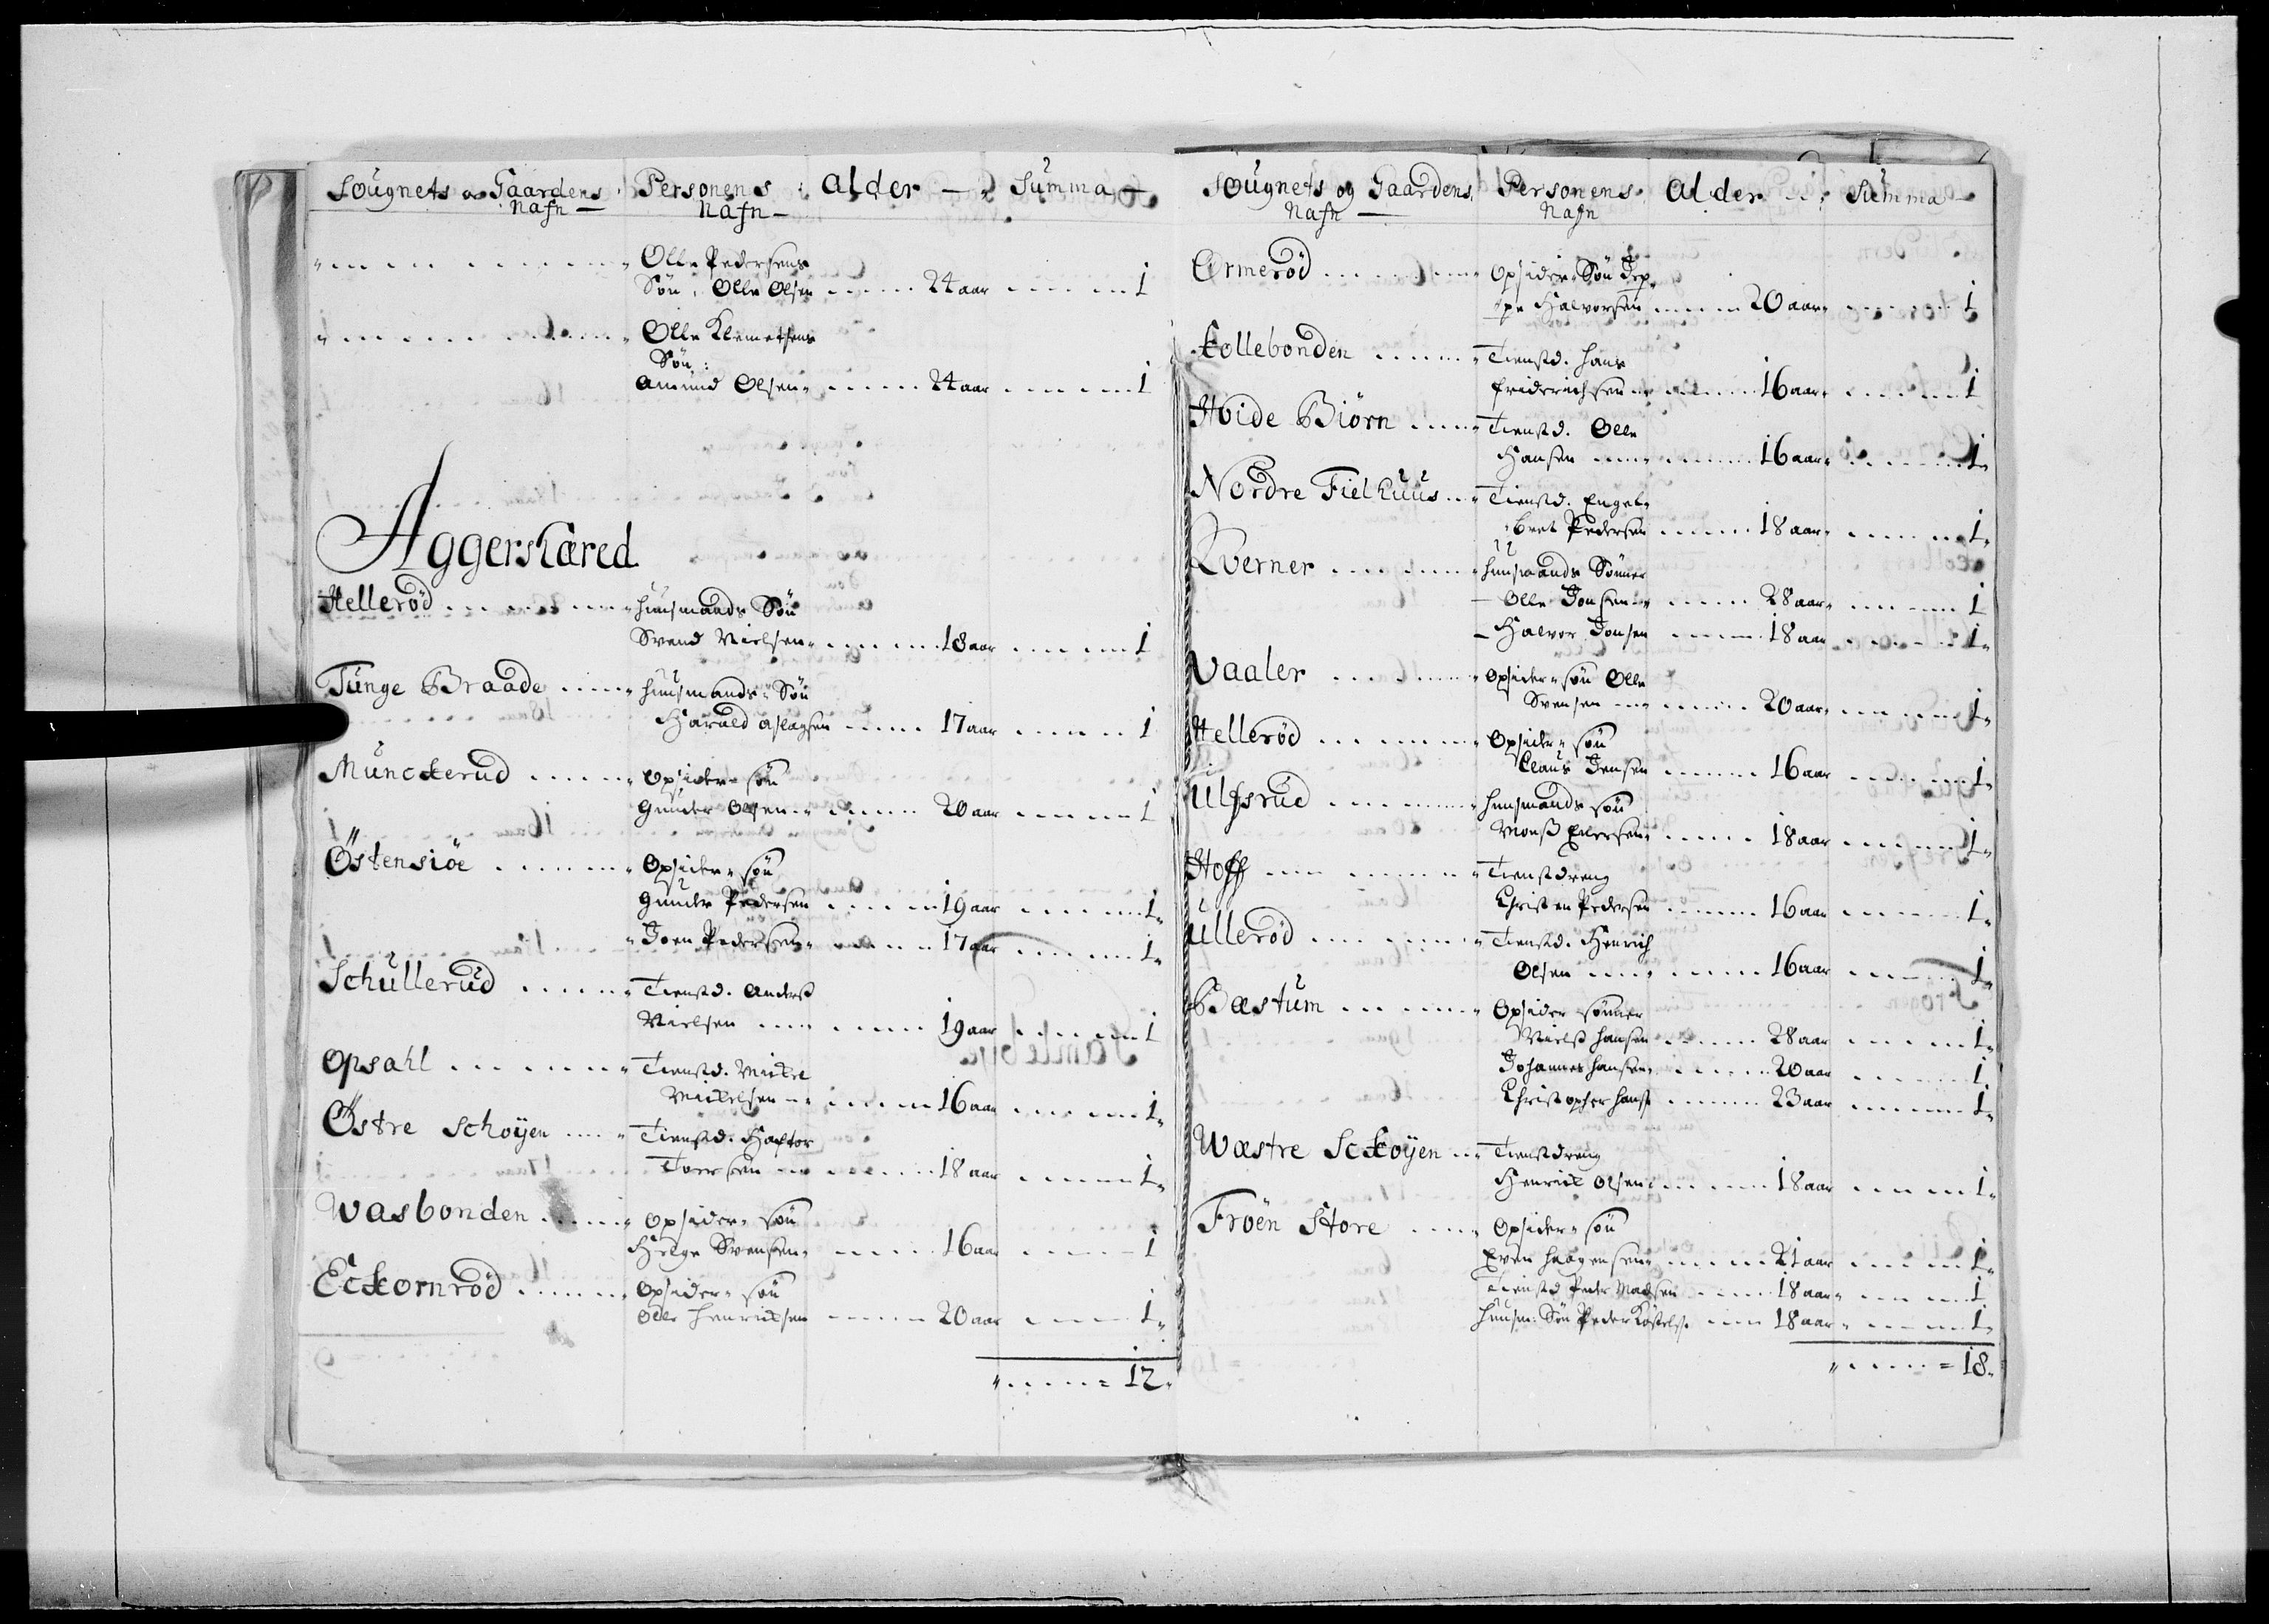 Sougnets og Gaardens Nafn — Personens Nafn — Alder — Summa —
Olle Pedersens
Søn, Olle Olsen 24 aar 1
Olle Klemetsens
Søn:
Amund Olsen 24 aar 1
Aggerhæred
Hellerød huusmands Søn
Svend Nielsen 18 aar 1
Tünge Braade huusmands Søn
Harald Aslagsen 17 aar 1
Münckerud Opsider søn
Gunder Olsen 20 aar 1
Östensiöe Opsider søn
Gunder Pedersen 19 aar 1
Joen Pedersen 17 aar 1
Schüllerüd Tienstd. Anders
Nielsen 19 aar 1
Opsahl Tienstd. Mickel
Mickelsen 16 aar 1
Östre Schoÿen Tienstd. Haftor
Toersen 18 aar 1
Wasbonden Opsider søn
Helge Svensen 16 aar 1
Eckornröd Opsider søn
Olle Henricksen 20 aar 1
= 12
Sougnets og Gaardens Nafn — Personens Nafn Alder Summa
Ormeröd Opsider Søn Jep
pe Halvorsen 20 aar 1
Kollebonden Tienstd. Hans
Friderichsen 16 aar 1
Hvide Biörn Tienstd. Olle
Hansen 16 aar 1
Nordre Fielhuus Tienstd. Engel
bret Pedersen 18 aar 1
Kverner huusmands Sönner
Olle Jonsen 28 aar 1
Halvor Jonsen 18 aar 1
Vaaler Opsider søn Olle
Svensen 20 aar 1
Helleröd Opsider søn
Claus Jensen 16 aar 1
Ulfsrud huusmands søn
Mons 18 aar 1
Hoff Tienstdreng
Christen Pedersen 16 aar 1
Ulleröd Tienstd. Henrich
Olsen 16 aar 1
Bæstum Opsider sönner
Niels Hansen 28 aar 1
Johannes Hansen 20 aar 1
Christopher Hans 23 aar 1
Wæstre Sckoÿen Tienstdreng
Henrick Olsen 18 aar 1
Fröen Store Opsider søn
Even Haagensen 21 aar 1
Tienstd Peder Madsen 18 aar 1
huusm: Søn Peder 18 aar 1
= 18